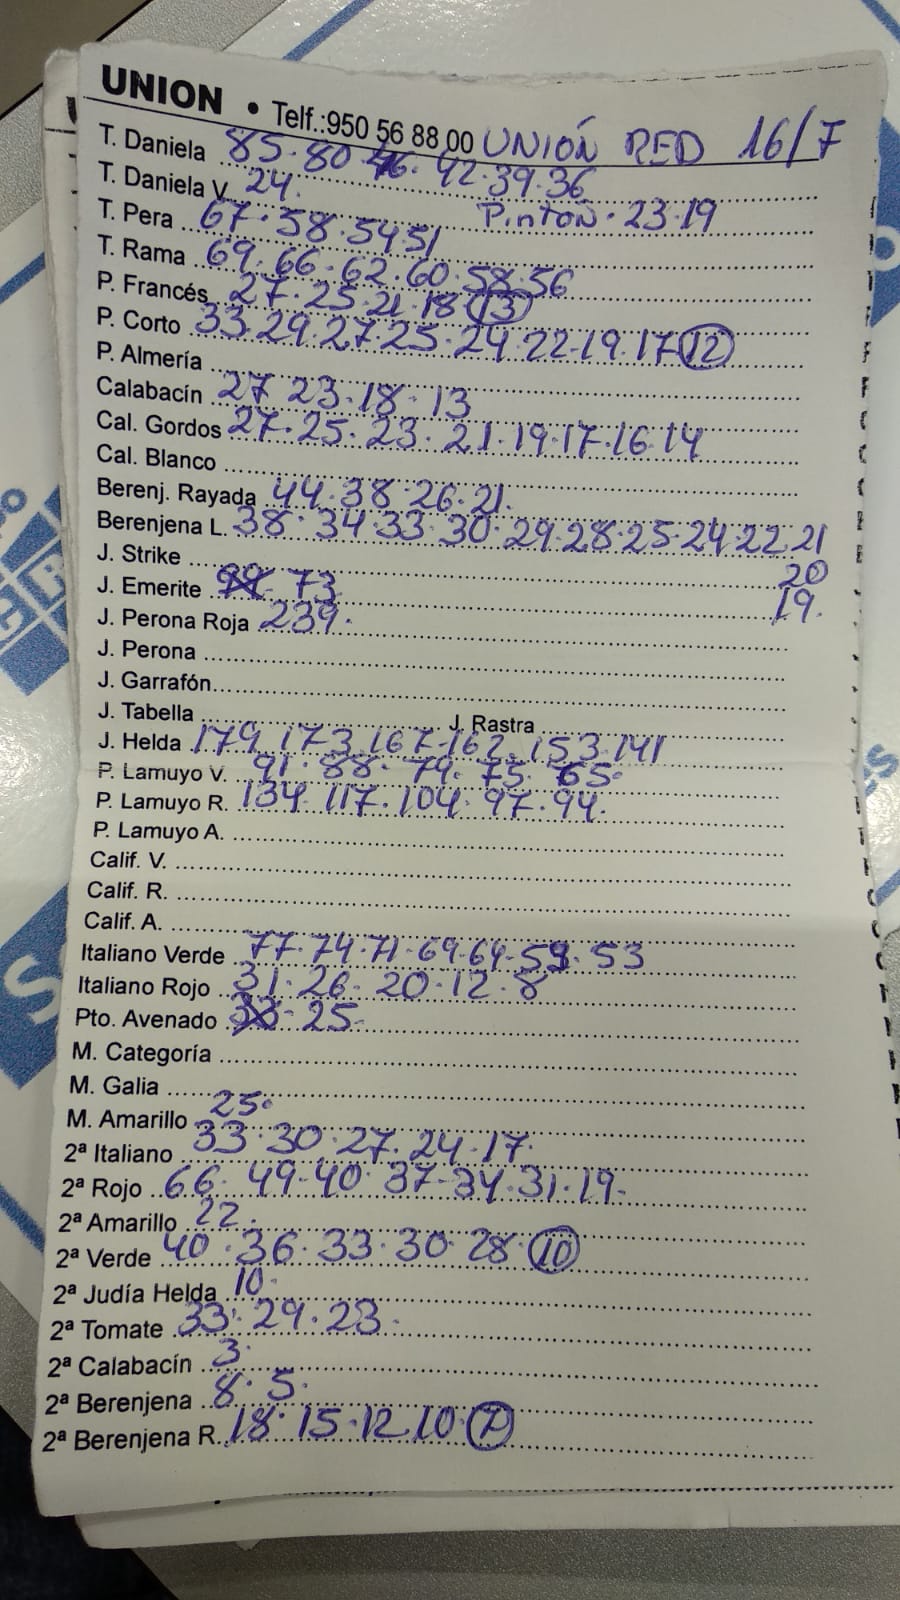 UNION • Telf.:950 56 88 00 UNIÓN RED 16/7
T. Daniela 85·80·46·42·39·36
T. Daniela V. 24. Pinton·23·19
T. Pera 67·58·54·51
T. Rama 69·66·62·60·58·56
P. Francés 27·25·21·18 (13)
P. Corto 33·29·27·25·24·22-19·17 (12)
P. Almería
Calabacín 27 23·18·13
Cal. Gordos 27·25·23·21·19·17·16·14
Cal. Blanco
Berenj. Rayada 44·38·26·21.
Berenjena L. 38·34·33·30·29·28·25·24·22·21
20
19.
J. Strike
J. Emerite 73
J. Perona Roja 239.
J. Perona
J. Garrafón
J. Tabella J. Rastra
J. Helda 179 173 167-162 153 141
P. Lamuyo V. 91·88·79·75·65·
P. Lamuyo R. 134 117·104·97·94.
P. Lamuyo A.
Calif. V.
Calif. R.
Calif. A.
Italiano Verde 77·74·71·69·64·59·53
Italiano Rojo 31·26·20·12·8
Pto. Avenado 25
M. Categoría
M. Galia
M. Amarillo 25·
2ª Italiano 33·30·27·24·17.
2ª Rojo 66·49-40·37-34·31·19.
2ª Amarillo 22·
2ª Verde 40·36·33·30·28·(10)
2ª Judía Helda 10.
2ª Tomate 33·29·23.
2ª Calabacín 3·
2ª Berenjena 8·5.
2ª Berenjena R. 18·15·12·10 (7)